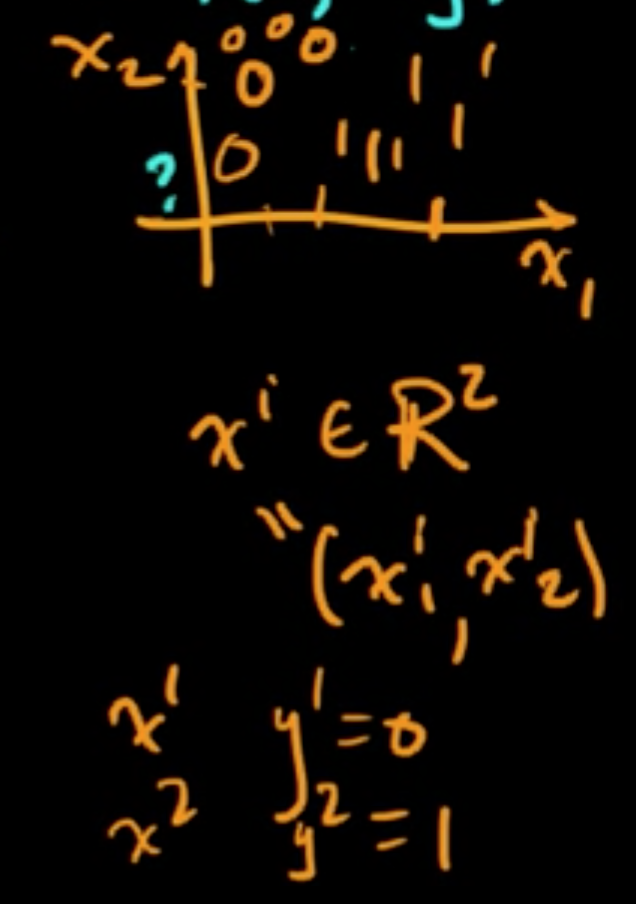 x₂ 0 0 0 1 1
0 1
? 0 1 1 1
x₁
x¹ ∈ ℝ²
" (x¹₁, x¹₂)
x¹ y¹ = 0
x² y² = 1